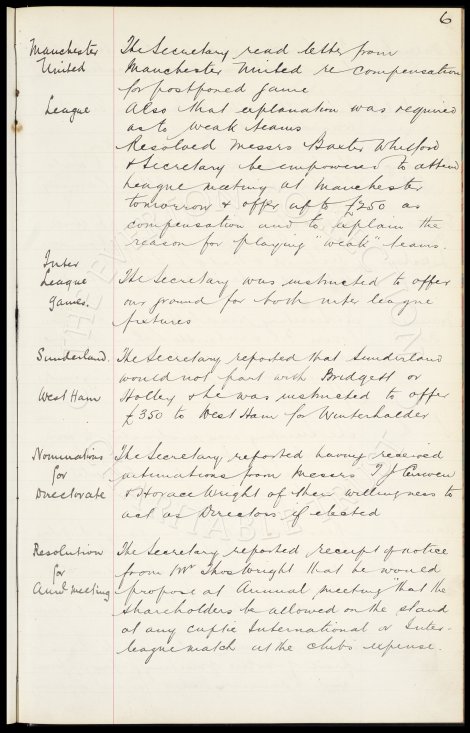 6
Manchester United
The Secretary read letter from
Manchester United re compensation
for postponed game
League
Also that explanation was required
as to weak teams
Resolved Messrs Baxter Whitford
& Secretary be empowered to attend
League meeting at Manchester
tomorrow & offer up to £250 as
compensation and to explain the
reason for playing "weak" teams.
Inter
League
Games.
The Secretary was instructed to offer
our ground for both inter league
fixtures
Sunderland.
The Secretary reported that Sunderland
would not part with Bridgett or
West Ham
Holley & he was instructed to offer
£350 to West Ham for Winterhalder
Nominations
for
Directorate
The Secretary reported having received
intimations from Messrs T J
& Horace Wright of their willingness to
act as Directors if elected
Resolution
for
Annl meeting
The Secretary reported receipt of notice
from Mr Thos Wright that he would
propose at Annual meeting "that the
shareholders be allowed on the stand
at any cuptie International or Inter-
league match at the clubs expense.